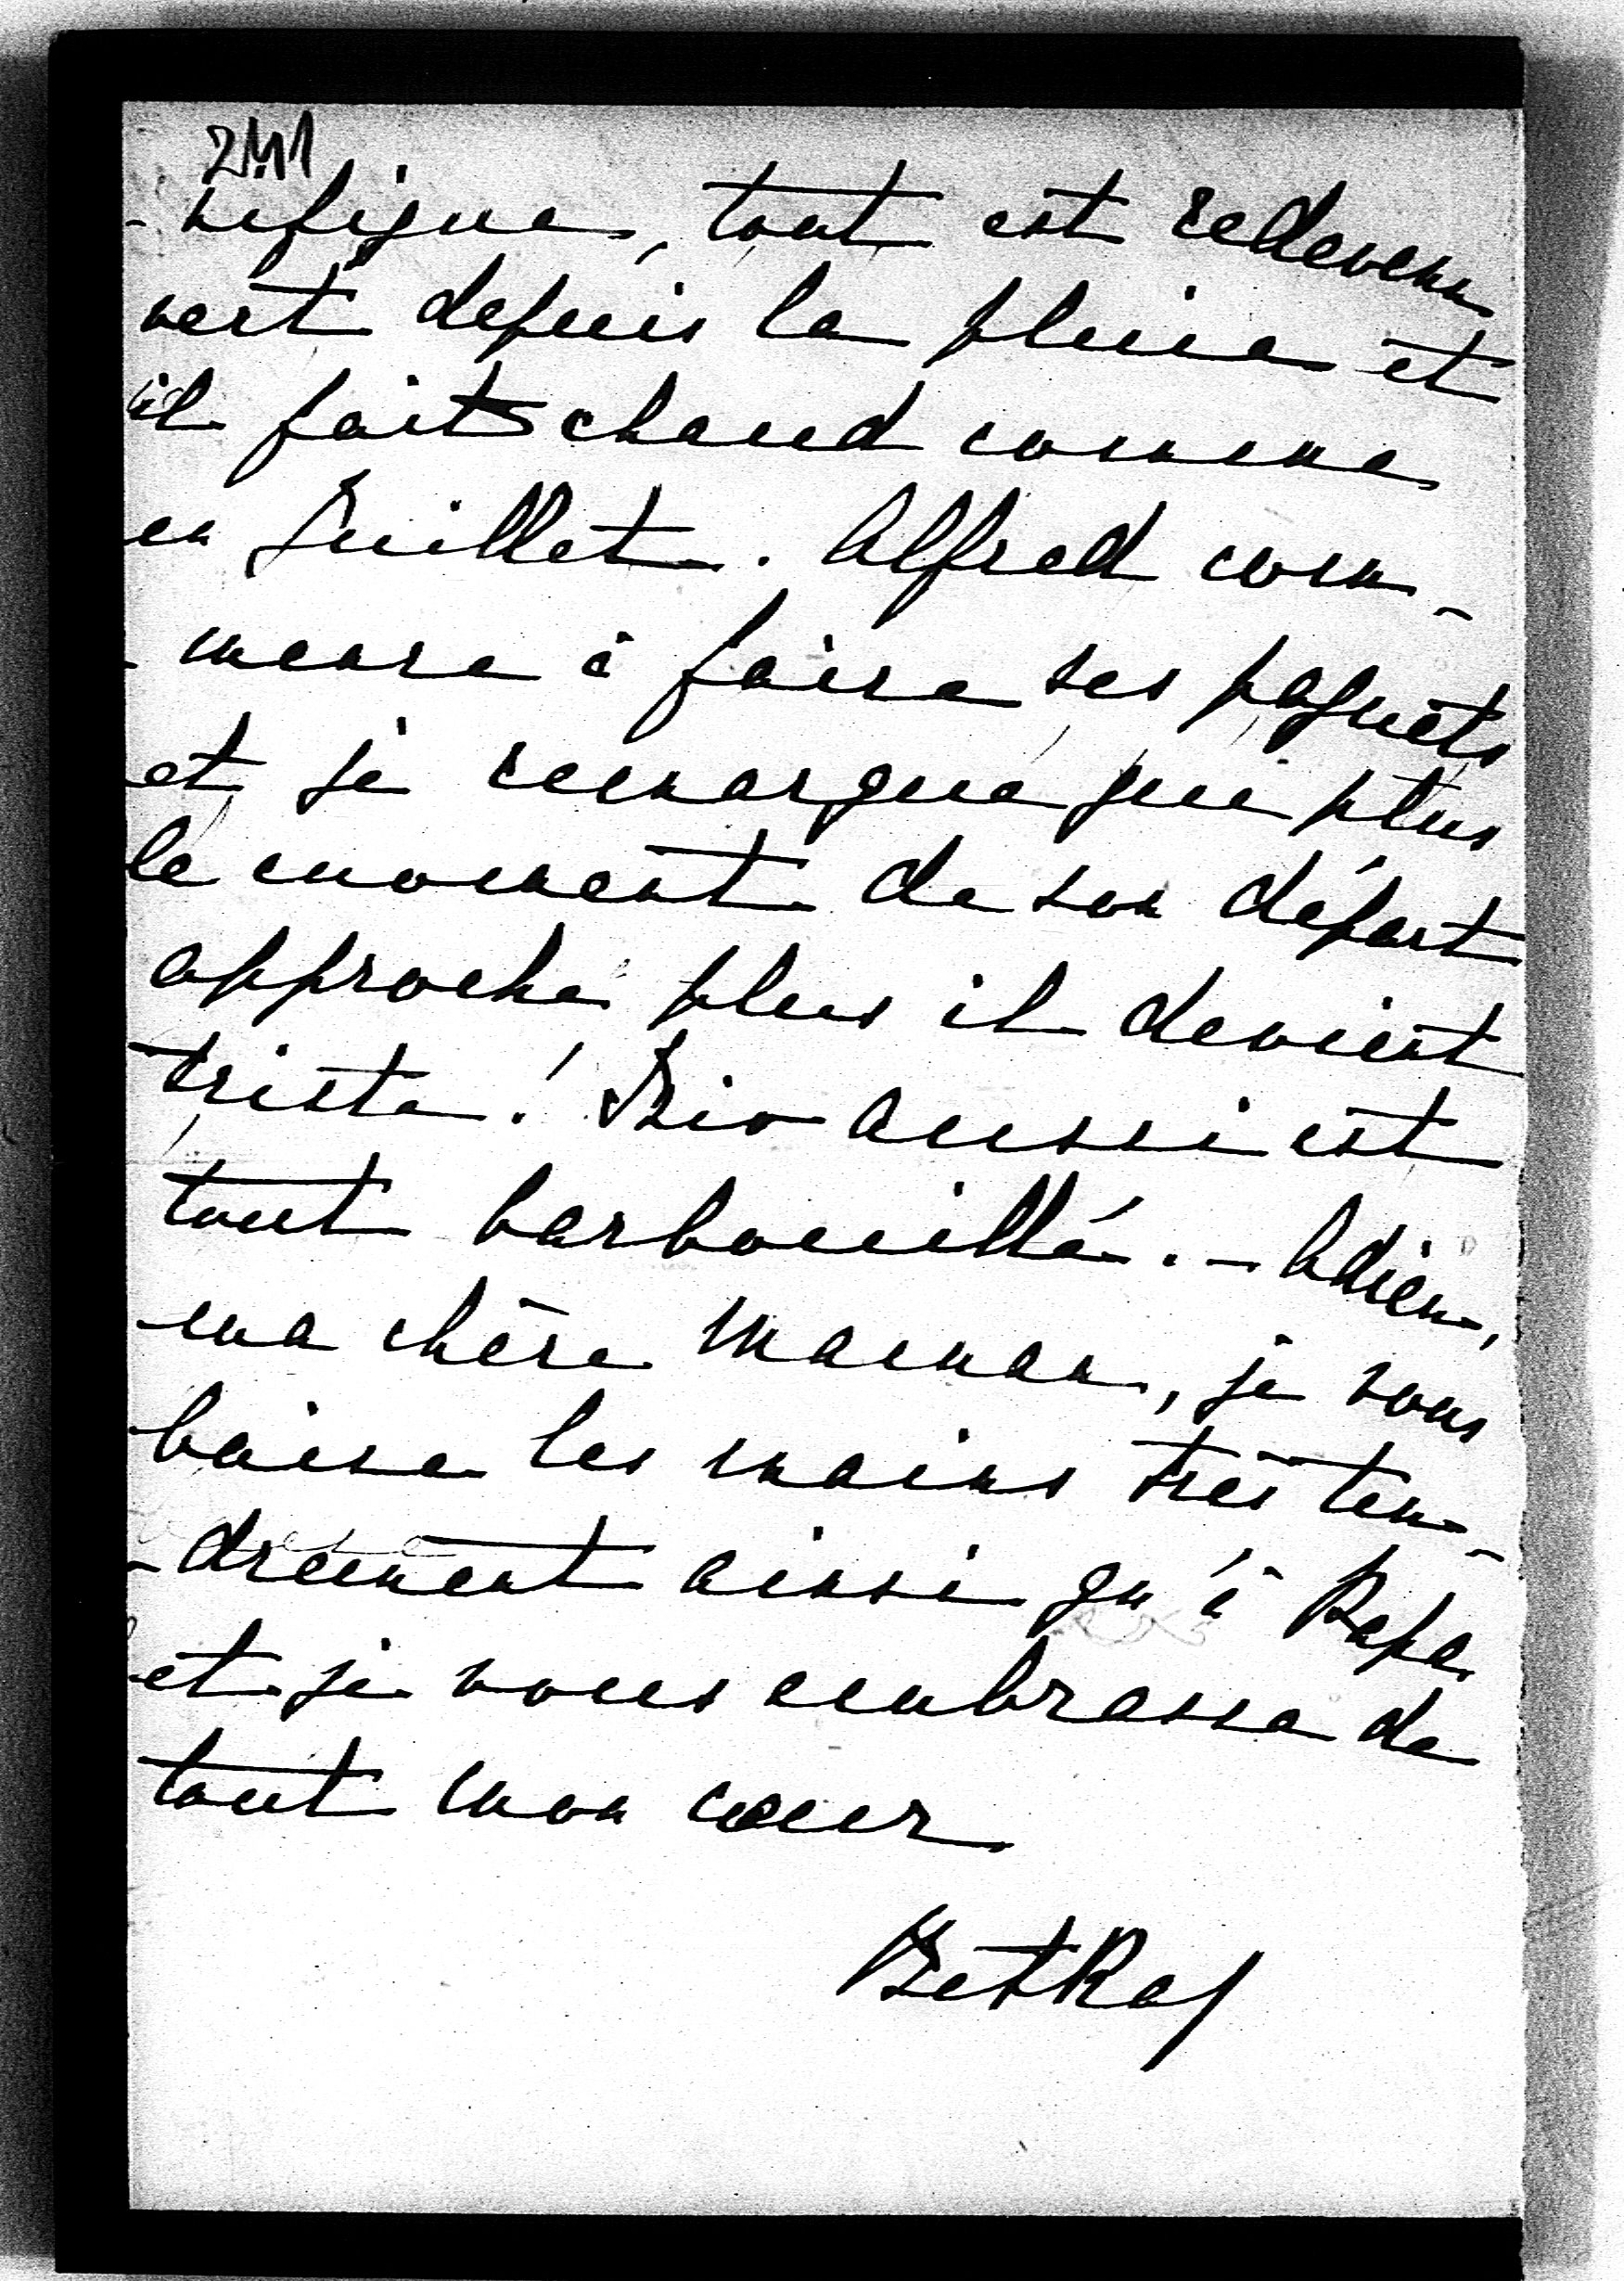 241
-nifique, tout est redevenu
vert depuis la pluie et
il fait chaud comme
en Juillet. Alfred com-
-mence à faire ses paquets
et je remarque que plus
le moment de son départ
approche plus il devient
triste! Bio aussi est
tout barbouillé. - Adieu,
ma chère Maman, je vous
baise les mains très ten-
-drement ainsi qu'à Papa
et je vous embrasse de
tout mon cœur
BetKa